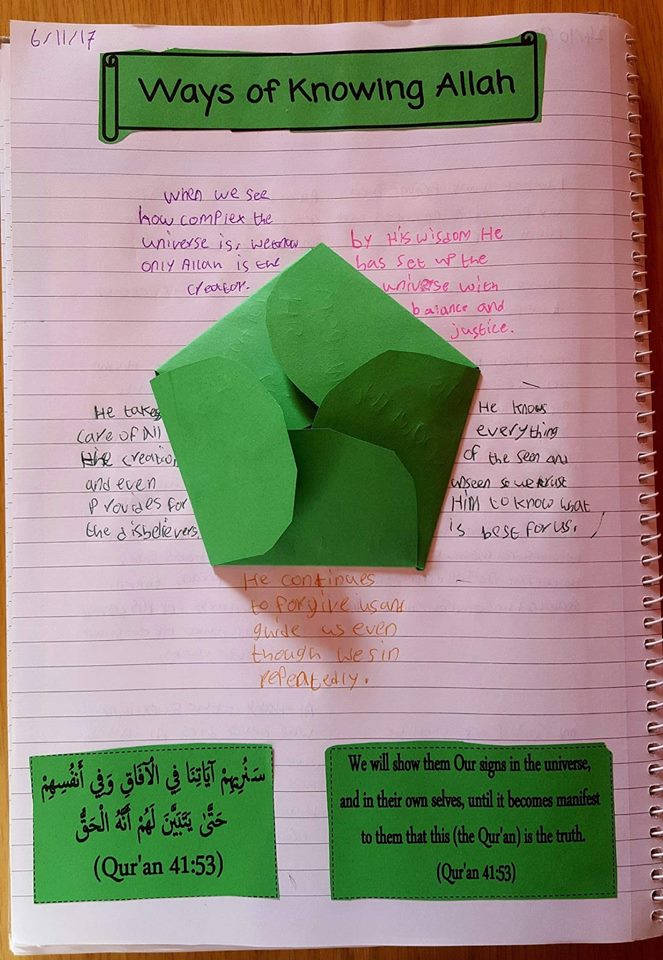 6/11/17
Ways of Knowing Allah
When we see
how complex the
universe is, we know
only Allah is the
creator.
by His wisdom He
has set up the
universe with
balance and
justice.
He takes
care of All
creation
and even
Provides for
the disbelievers
He knows
everything
of the seen and
unseen so we trust
Him to know what
is best for us.
He continues
to forgive us and
guide us even
though we sin
repeatedly.
سَنُرِيهِمْ آيَاتِنَا فِي الْآفَاقِ وَفِي أَنْفُسِهِمْ
حَتَّىٰ يَتَبَيَّنَ لَهُمْ أَنَّهُ الْحَقُّ
(Qur'an 41:53)
We will show them Our signs in the universe,
and in their own selves, until it becomes manifest
to them that this (the Qur'an) is the truth.
(Qur'an 41:53)